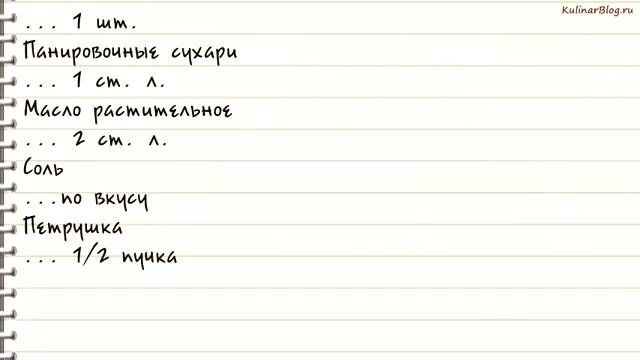 KulinarBlog.ru
... 1 шт.
Панировочные сухари
... 1 ст. л.
Масло растительное
... 2 ст. л.
Соль
...по вкусу
Петрушка
... 1/2 пучка